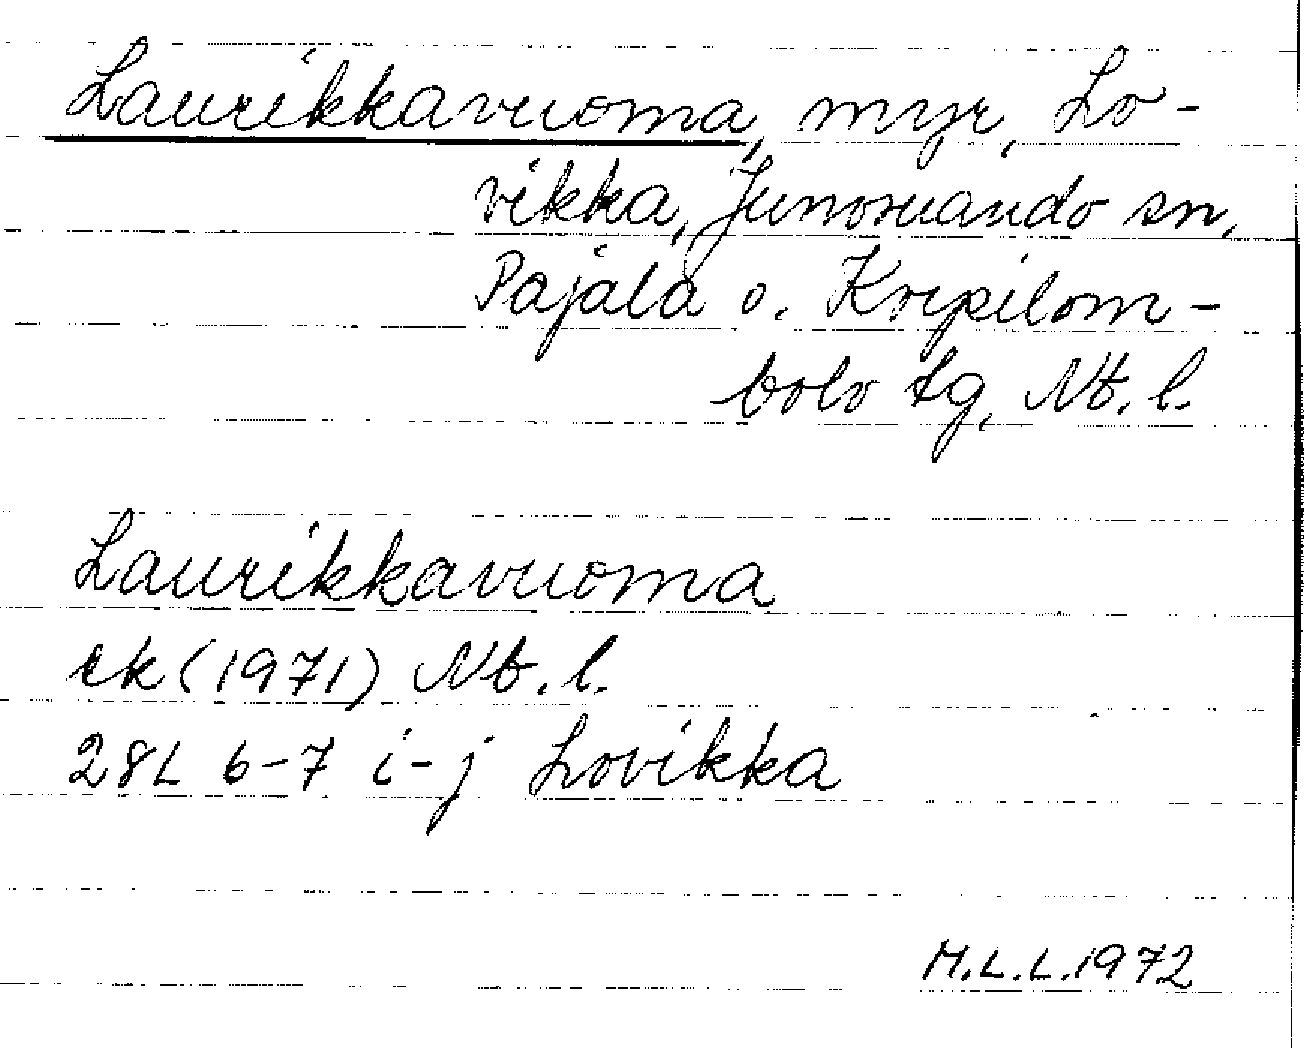 Laurikkavuoma, myr, Lo-
vikka, Junosuando sn,
Pajala o. Korpilom-
bolo tg, Nb. l.
Laurikkavuoma
rk (1971) Nb. l.
28L 6-7 i-j Lovikka
M.L.L. 1972